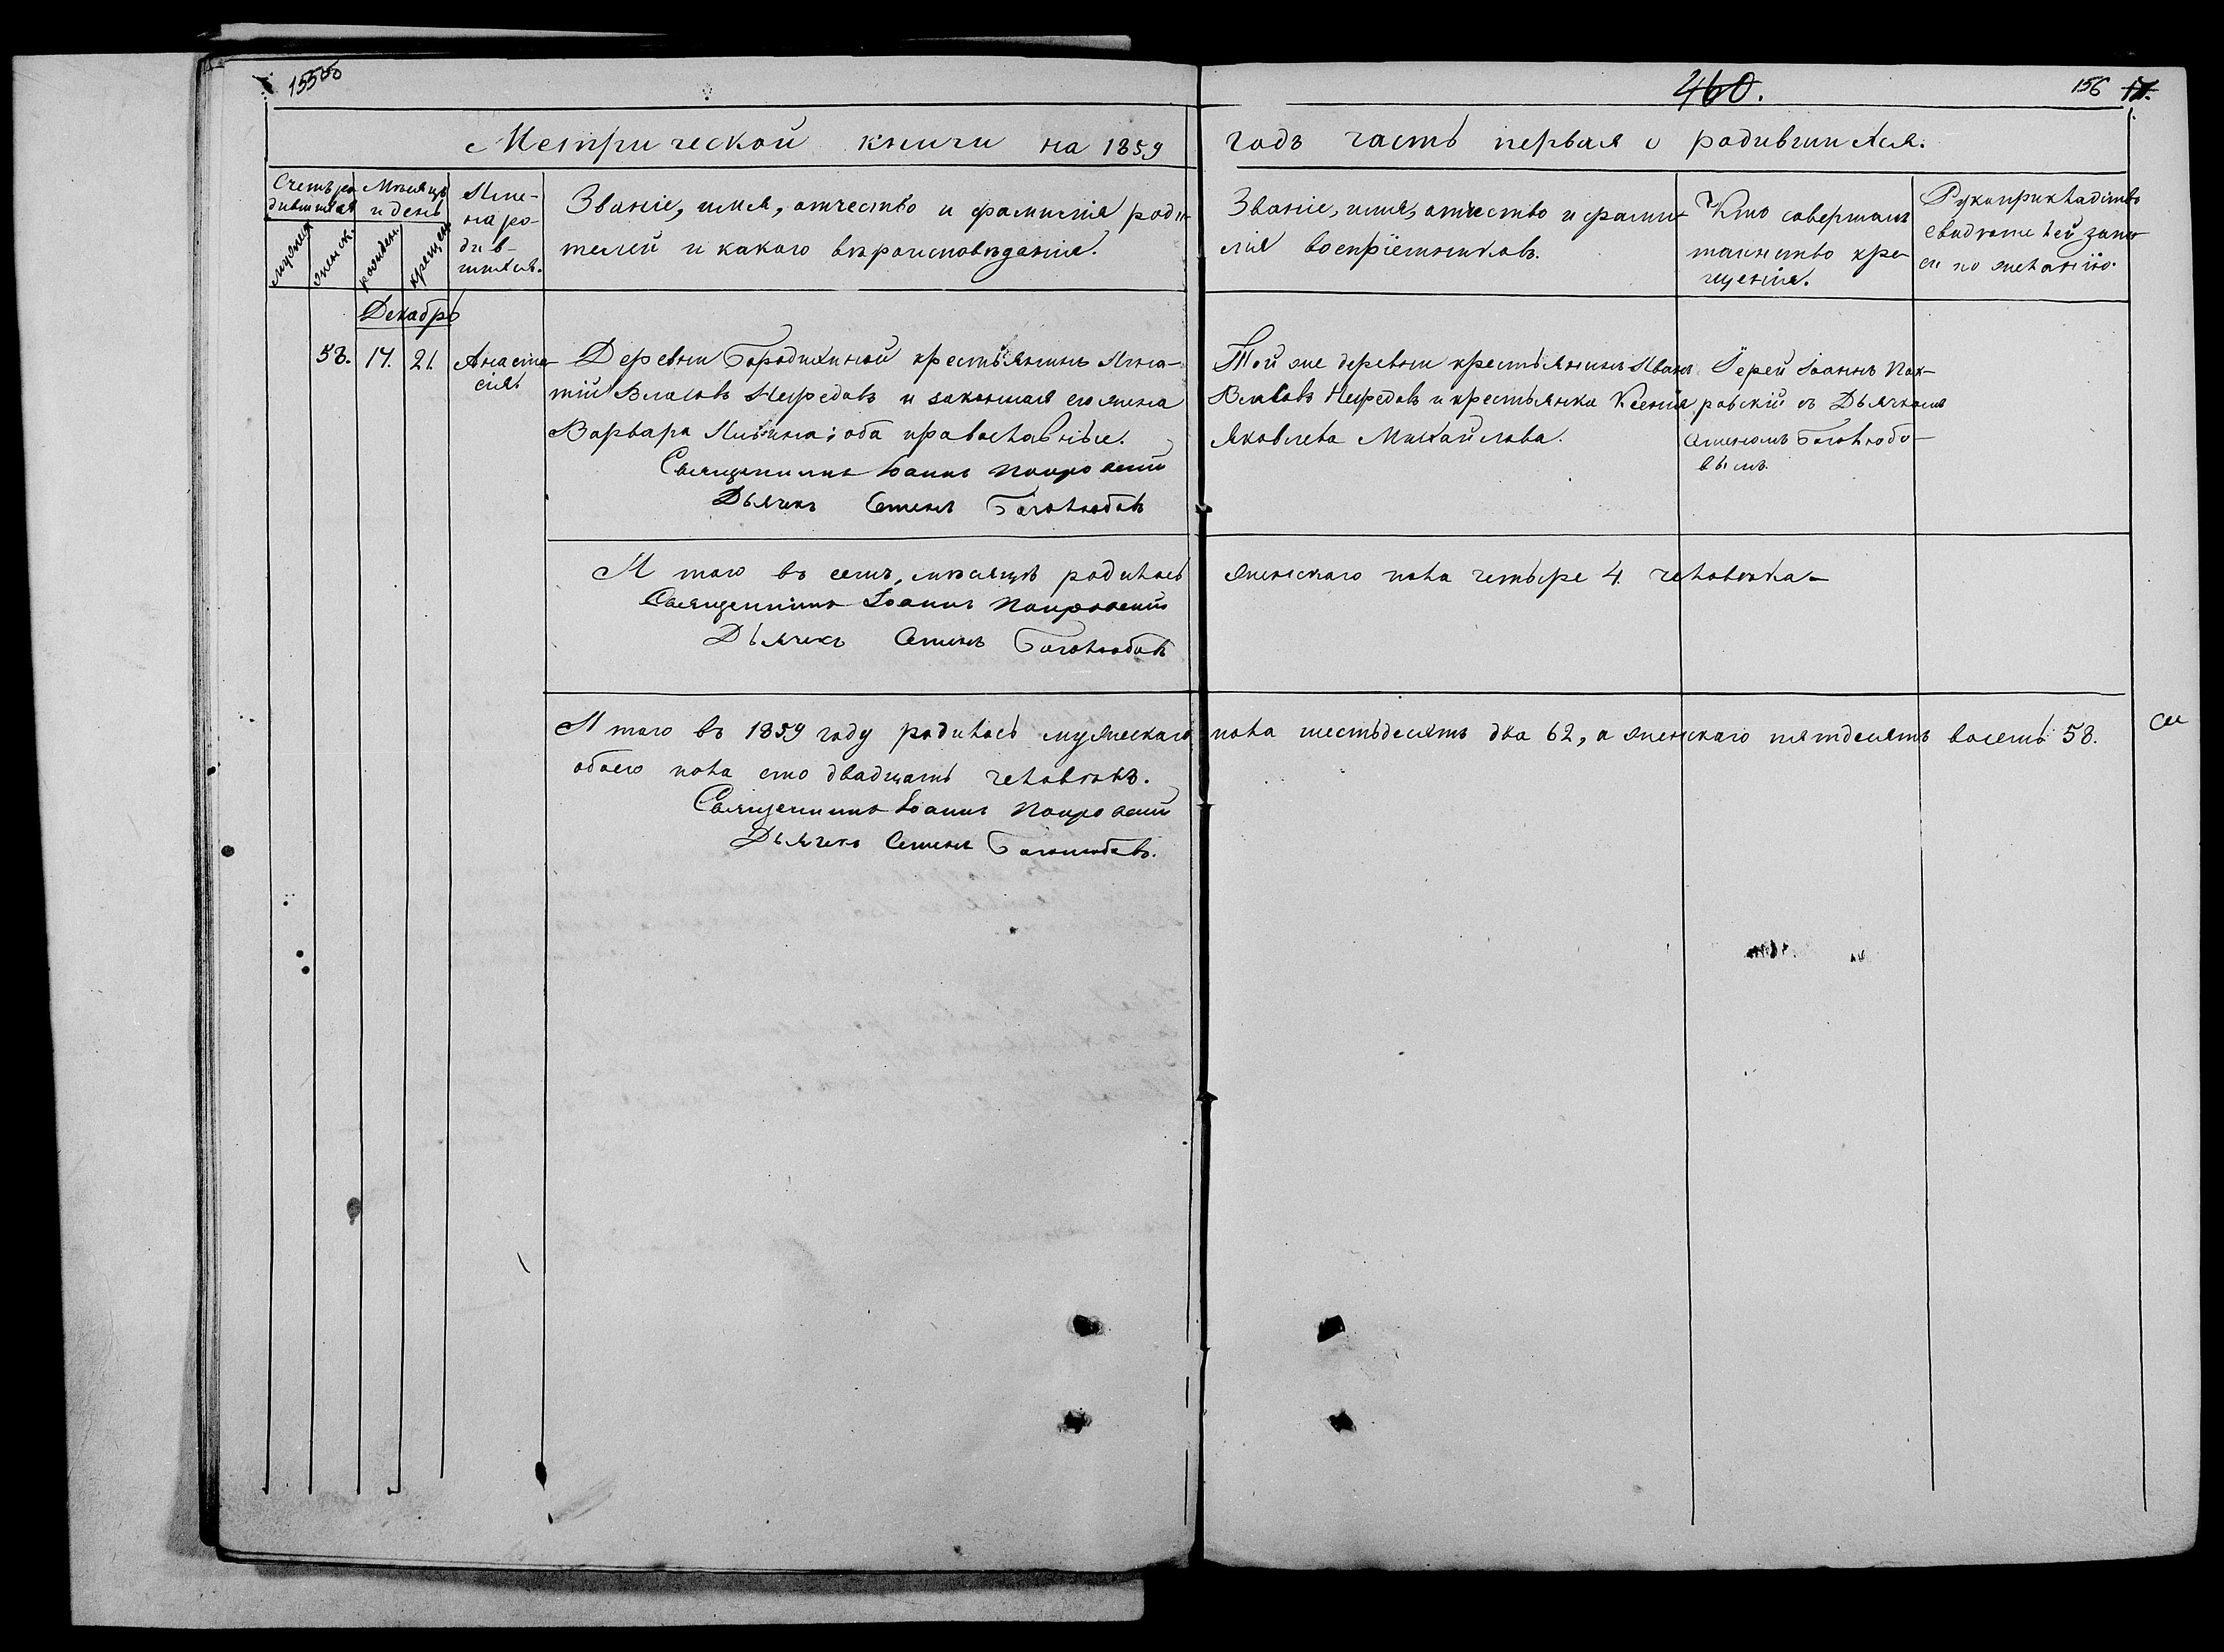 155об
460.
156 17.
Метрической книги на 1859
годъ часть первая о родившихся.
Счетъ ро-
дившихся
Мѣсяцъ
и день
мужеска
женск.
рожден.
крещен.
Име-
на ро-
див-
шихся.
Званіе, имя, отчество и фамилія роди-
телей и какого вѣроисповѣданія.
Званіе, имя, отчество и фами-
лія воспріемниковъ.
Кто совершалъ
таинство кре-
щенія.
Рукоприкладство
свидѣтелей запи-
си по желанію.
Декабрь
58. 17. 21. Анаста-
сія
Деревни Бородихиной крестьянинъ Игна-
тій Власовъ Нефедовъ и законная его жена
Варвара Ильина; оба православные.
Священникъ Іоаннъ Покровскій
Дьячекъ Семенъ Боголюбовъ
Той же деревни крестьянинъ Иванъ
Власовъ Нефедовъ и крестьянка Ксенія
Яковлева Михайлова.
Іерей Іоаннъ Пок-
ровскій съ Дьячкомъ
Семеномъ Боголюбо-
вымъ.
И того въ семъ мѣсяцѣ родилось
женскаго пола четыре 4 человѣка
Священникъ Іоаннъ Покровскій
Дьячекъ Семенъ Боголюбовъ
И того въ 1859 году родилось мужескаго
пола шестьдесятъ два 62, а женскаго пятдесятъ восемь 58.
обоего пола сто двадцать человѣкъ.
Священникъ Іоаннъ Покровскій
Дьячекъ Семенъ Боголюбовъ.